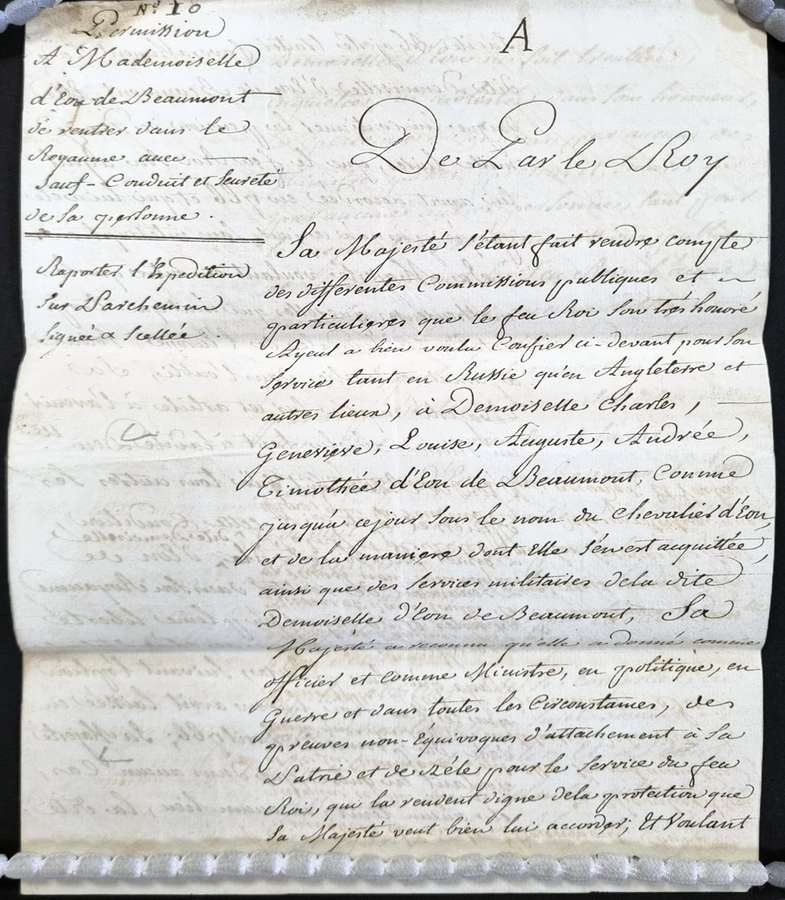 Nº 10
Permission
A Mademoiselle
d'Eon de Beaumont
de rentrer dans le
Royaume avec
Sauf-Conduit et Seureté
de Sa personne.
Raporter l'Expedition
Sur Parchemin
Signée & Scellée.
A
De Par le Roy
Sa Majesté s'étant fait rendre compte
des differentes Commissions publiques et
particulieres que le feu Roi Son trés honoré
Ayeul a bien voulu Confier ci-devant pour Son
Service tant en Russie qu'en Angleterre et
autres lieux, à Demoiselle Charles,
Geneviéve, Louise, Auguste, Andrée,
Timothée d'Eon de Beaumont, Connue
jusqu'à ce jour sous le nom du Chevalier d'Eon,
et de la maniere dont Elle s'en est acquittée,
ainsi que des Services militaires de la dite
Demoiselle d'Eon de Beaumont, Sa
Majesté a reconnu qu'elle a donné comme
officier et comme Ministre, en politique, en
Guerre et dans toutes les Circonstances, des
preuves non-Equivoques d'attachement à Sa
Patrie et de Zéle pour le Service du feu
Roi, qui la rendent digne de la protection que
Sa Majesté veut bien lui accorder; Et Voulant